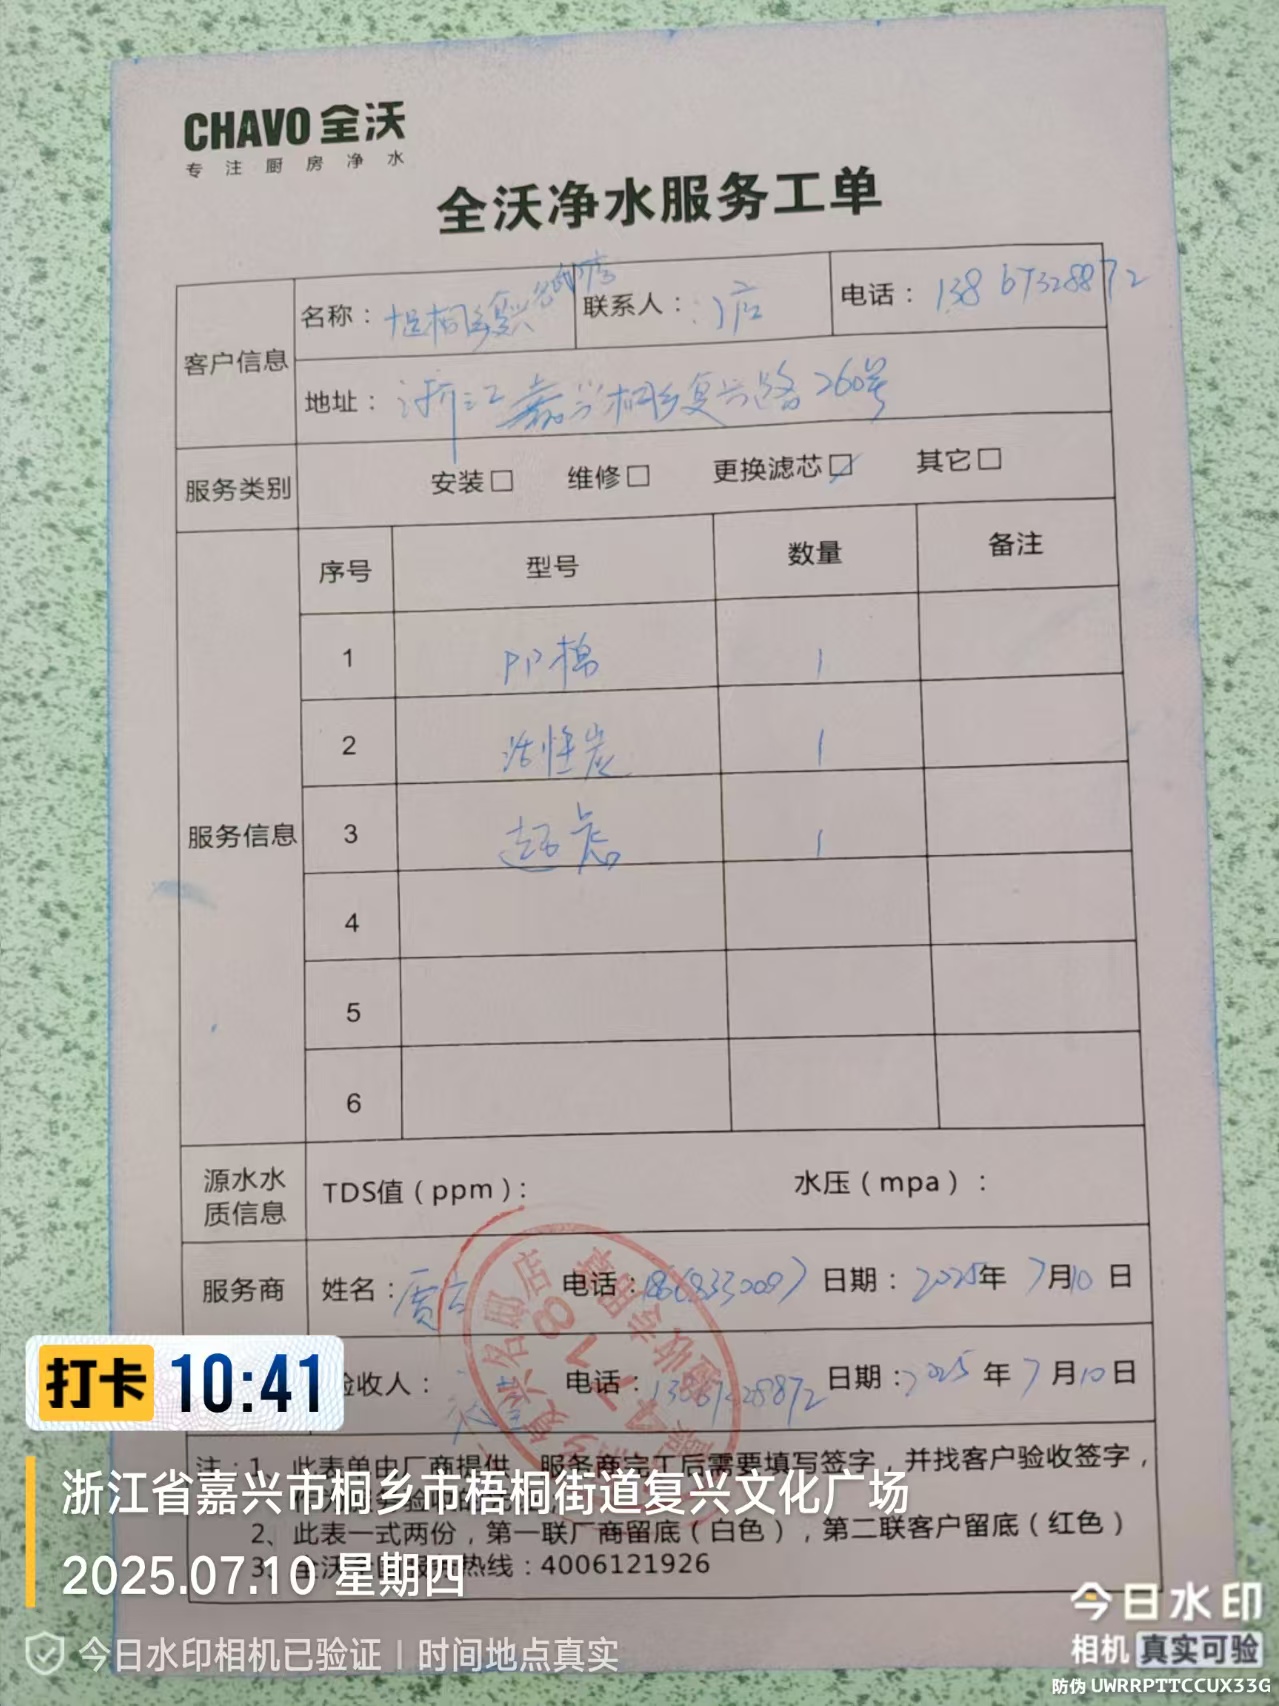 CHAVO 全沃
专注厨房净水
全沃净水服务工单
客户信息
名称： 桐乡复兴名邸店
联系人： 店
电话： 13867328872
地址： 浙江嘉兴桐乡复兴路260号
服务类别
安装□ 维修□ 更换滤芯☑ 其它□
服务信息
序号 型号 数量 备注
1 PP棉 1
2 活性炭 1
3 超滤 1
4
5
6
源水水质信息
TDS值（ppm）： 水压（mpa）：
服务商
姓名： 电话： 日期：2025年7月10日
验收人： 电话： 日期：2025年7月10日
注：1、此表单由厂商提供，服务商完工后需要填写签字，并找客户验收签字，
2、此表一式两份，第一联厂商留底（白色），第二联客户留底（红色）
3、全沃全国服务热线：4006121926
打卡 10:41
浙江省嘉兴市桐乡市梧桐街道复兴文化广场
2025.07.10 星期四
今日水印相机已验证 | 时间地点真实
今日水印
相机 真实可验
防伪 UWRRPTTCCUX33G